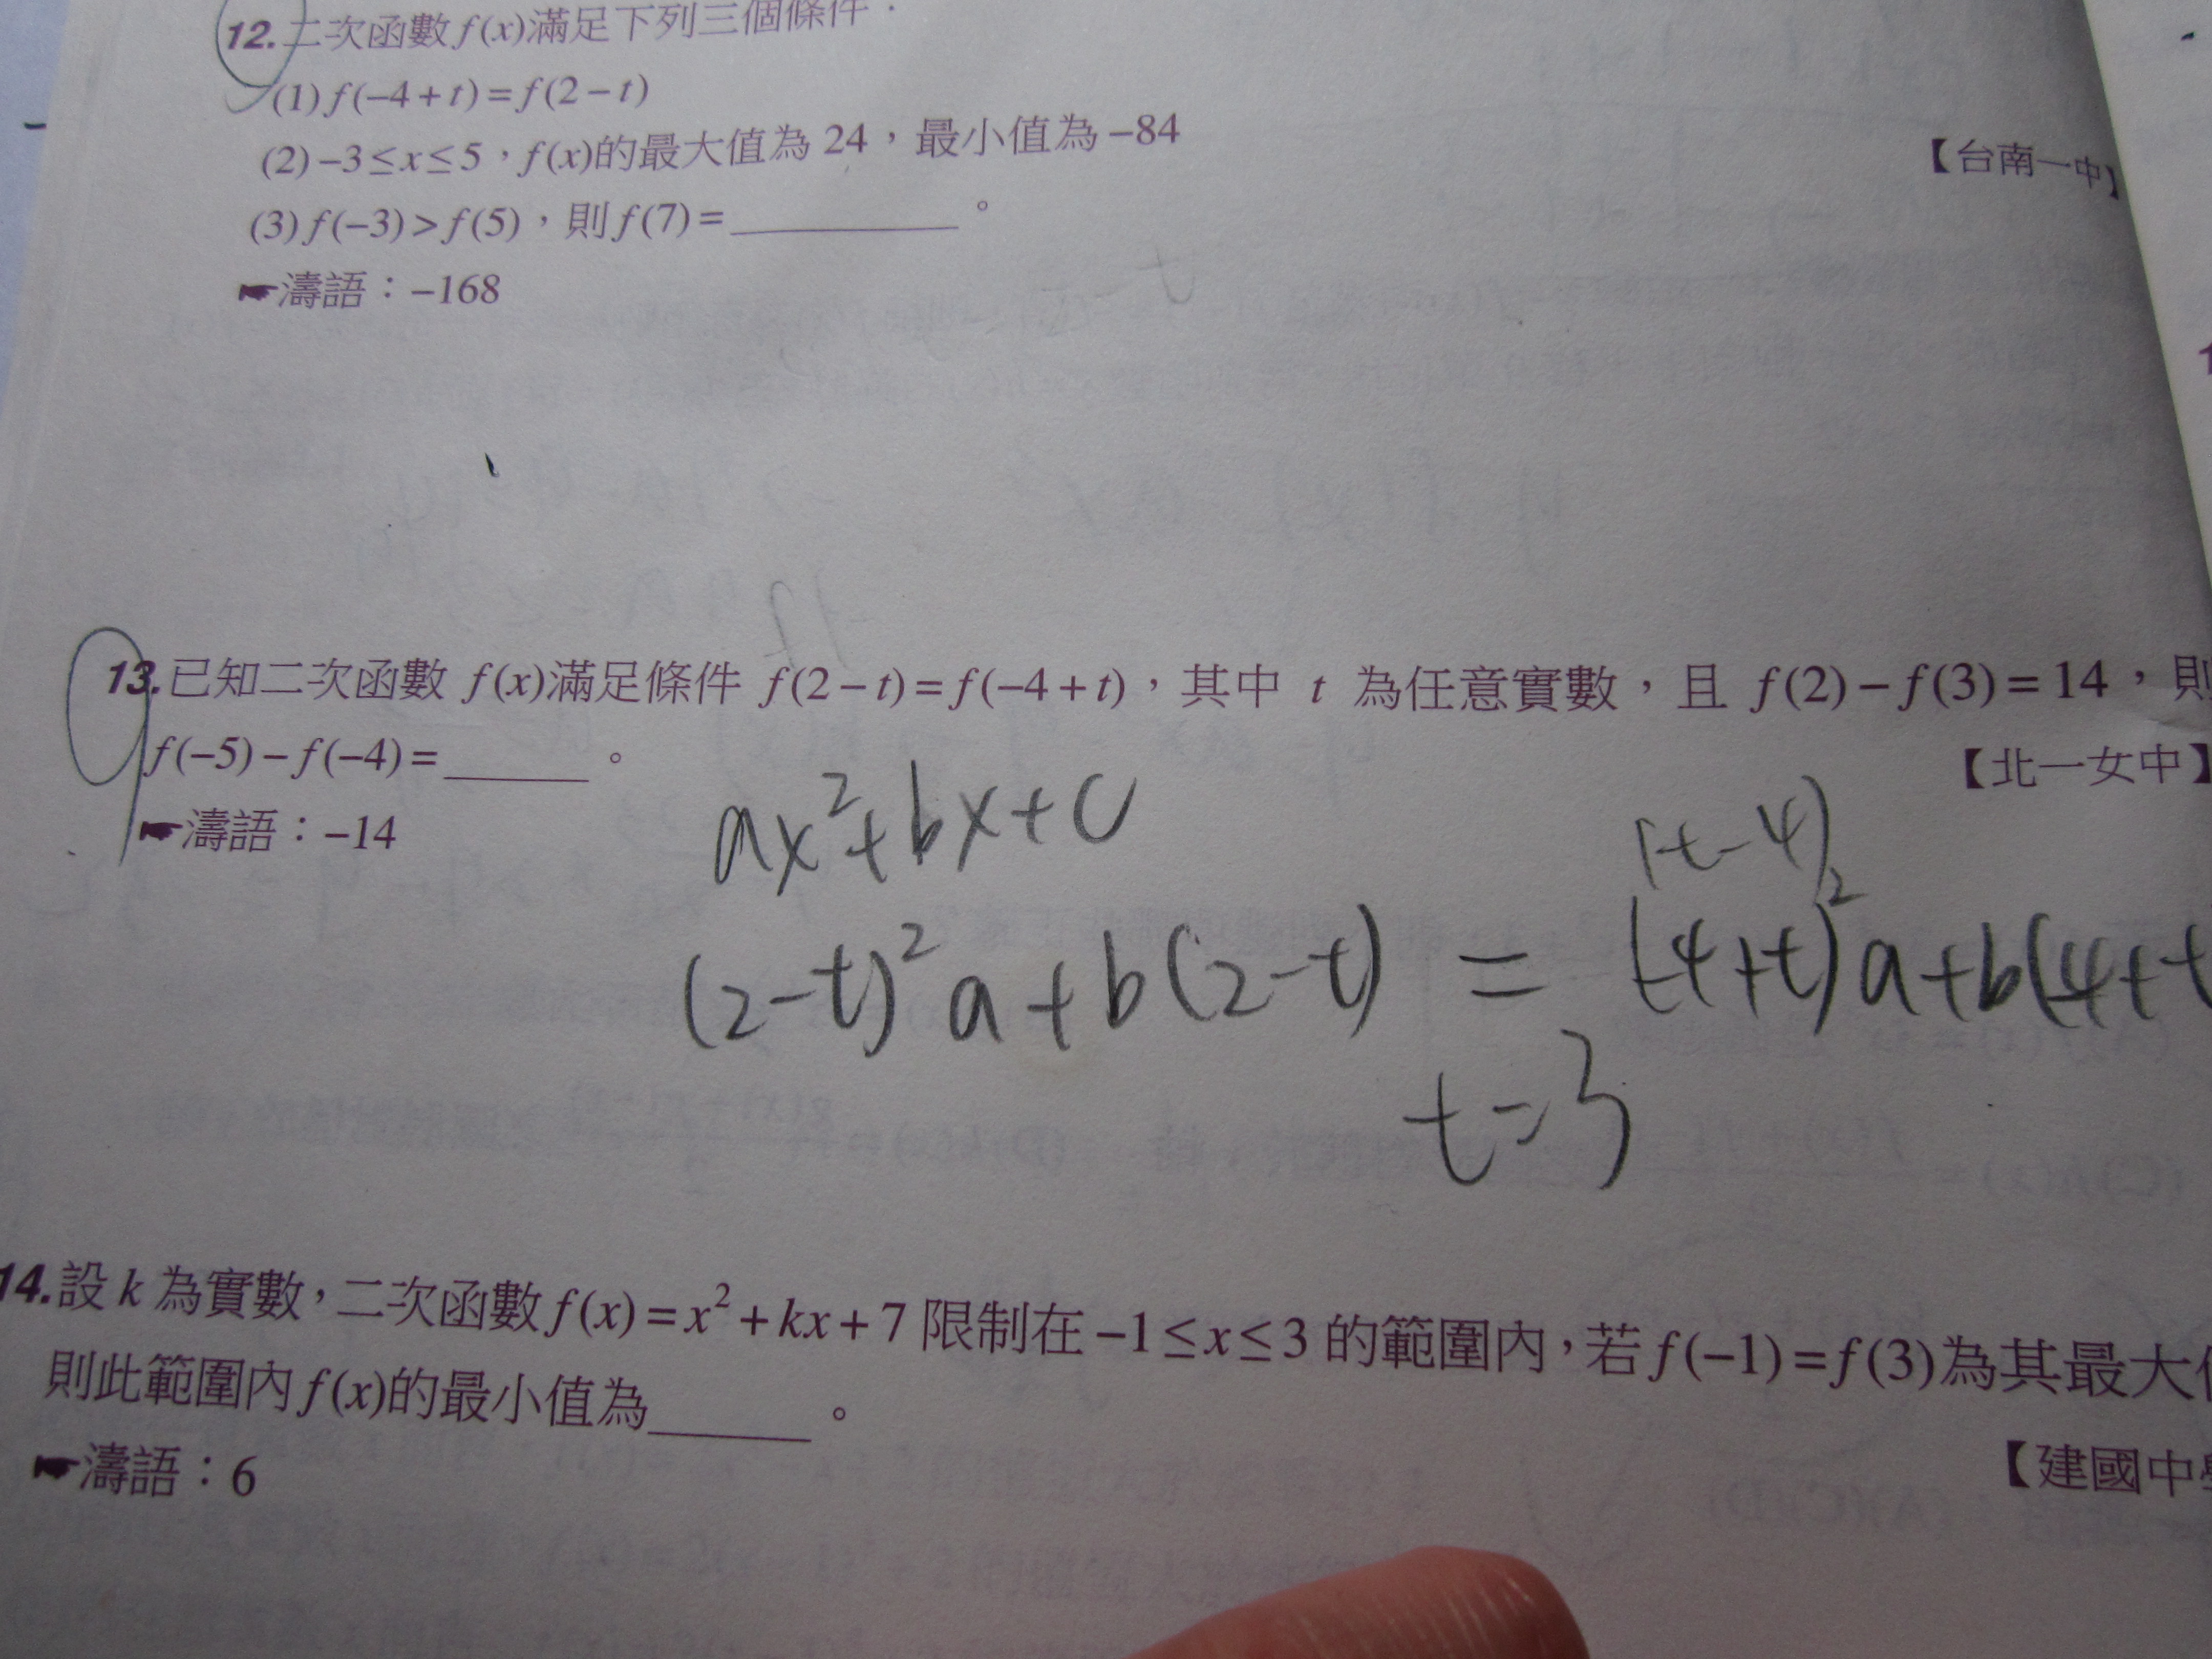 12.二次函數 f(x)滿足下列三個條件：
(1) f(−4+t)=f(2−t)
(2) −3≤x≤5，f(x)的最大值為 24，最小值為 −84
【台南一中】
(3) f(−3)>f(5)，則 f(7)=________。
☛濤語：−168
13.已知二次函數 f(x)滿足條件 f(2−t)=f(−4+t)，其中 t 為任意實數，且 f(2)−f(3)=14，則
f(−5)−f(−4)=______。
【北一女中】
☛濤語：−14
ax²+bx+c
(t-4)²
(2-t)²a+b(2-t) = (-4+t)²a+b(4+t
t=3
14.設 k 為實數，二次函數 f(x)=x²+kx+7 限制在 −1≤x≤3 的範圍內，若 f(−1)=f(3)為其最大
則此範圍內 f(x)的最小值為______。
【建國中
☛濤語：6